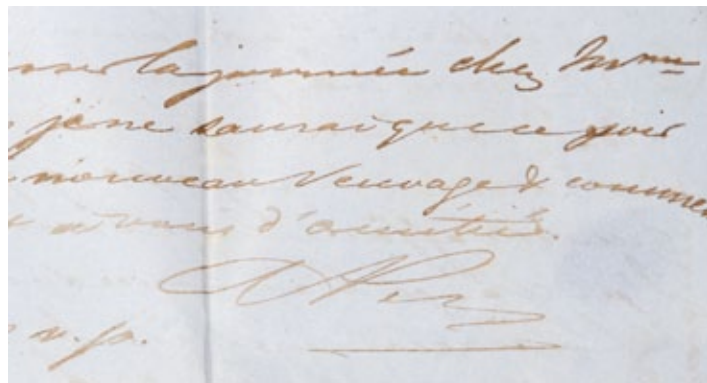 la journée chez Mme
je ne saurai que ce soir
nouveau veuvage & comme
à vous d'amitié.